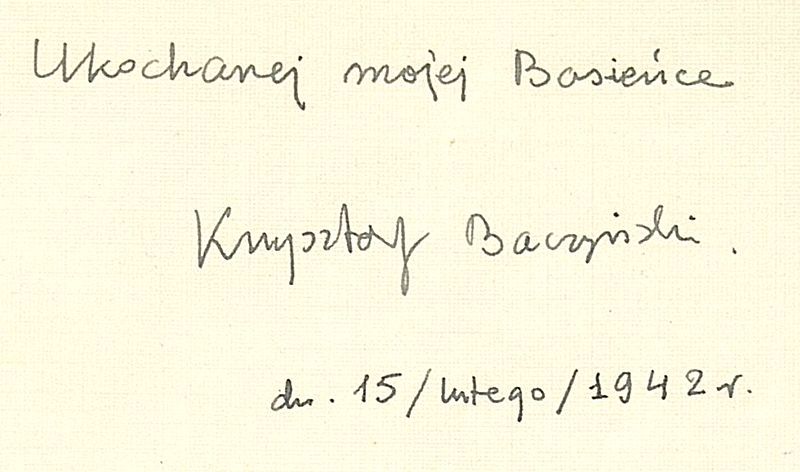 Ukochanej mojej Basieńce
Krzysztof Baczyński.
dn. 15/lutego/1942 r.